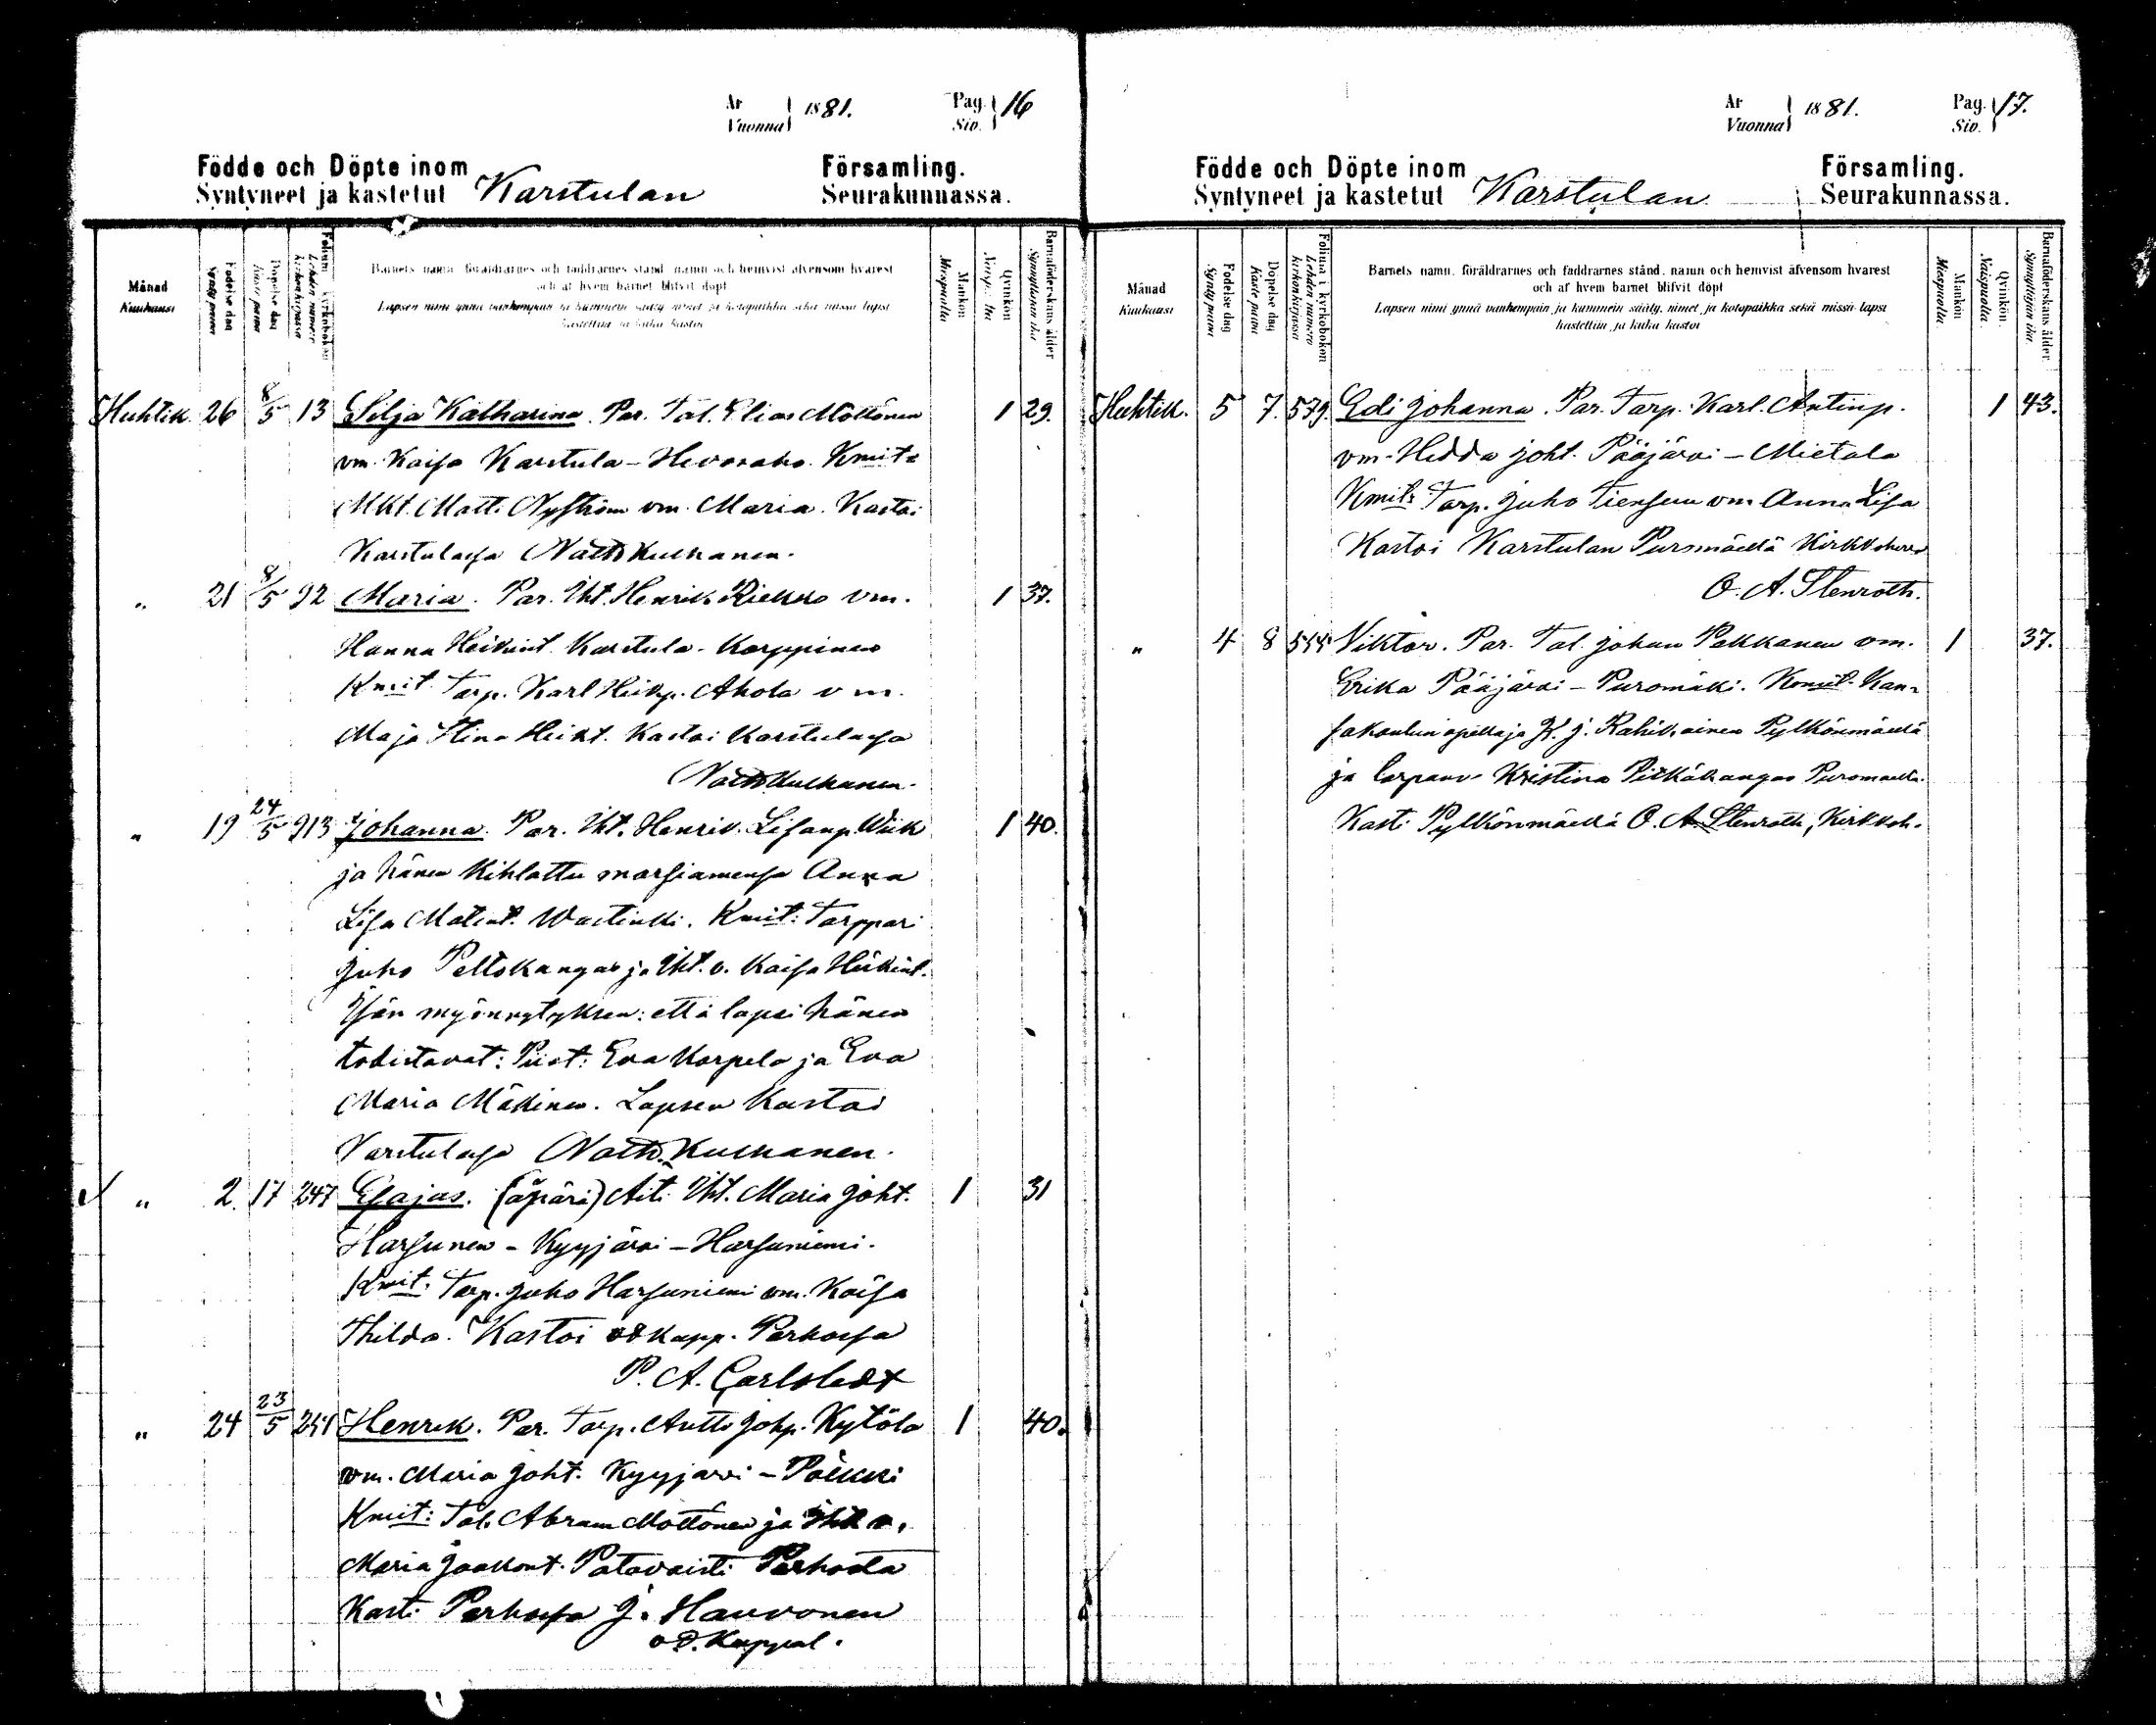 År
Vuonna
1881.
Pag.
Siv.
16
Födde och Döpte inom
Församling.
Syntyneet ja kastetut
Karstulan
Seurakunnassa.
Månad
Kuukausi
Födelse dag
Synty päivä
Döpelse dag
Kaste päivä
Folium i kyrkoboken
Lehden numero kirkonkirjassa
Barnets namn, föräldrarnes och faddrarnes stånd, namn och hemvist äfvensom hvarest
och af hvem barnet blifvit döpt
Lapsen nimi ynnä vanhempain ja kummein sääty, nimet ja kotopaikka sekä missä lapsi
kastettiin ja kuka kastoi
Mankön
Miespuolia
Qvinkön
Barnaföderskans ålder
Synnyttäjän ikä
Huhtik. 26 8/5 13 Silja Katharina. Par. Tal. Elias Möttönen 1 29.
vm. Kaisa Karstula - Hevosaho. Kmit:
Mkt. Matti Nyström vm. Maria. Kastoi
Karstulassa Nath Kuukanen.
" 21 8/5 92 Maria. Par. Iht. Henrik Riekko vm. 1 37.
Hanna Heikint. Karstula - Korppinen
Kmit. Tarp. Karl Heikp. Ahola vm.
Maja Stina Heikt. Kastoi Karstulassa
Nath Kuukanen.
" 19 24/5 913 Johanna. Par. Iht. Henrik Lisanp. Wiik 1 40.
ja hänen kihlattu morsiamensa Anna
Lisa Matint. Wastinki. Kmit: Torppari
Juho Peltokangas ja Iht. v. Kaisa Heikint.
Isän myönnytyksen: että lapsi hänen
todistavat: Piiat: Eva Korpela ja Eva
Maria Mäkinen. Lapsen Kastoi
Karstulassa Nath. Kuukanen.
" 2. 17 247 Esajas. (äpärä) Äiti Iht. Maria Joht. 1 31
Harsunen - Kyyjärvi - Harsuniemi.
Kmit. Tarp. Juho Harsuniemi vm. Kaisa
Thilda. Kastoi vt Kapp. Perhossa
P. A. Carlstedt
" 24 23/5 Henrik. Par. Tarp. Antti Johp. Kytölä 1 40.
vm. Maria Joht. Kyyjärvi -
Kmit: Tal. Abram Möttönen ja
Maria Jaakont. Perhosta
Kast: Perhossa J. Hauvonen
v.t. Kappal.
År
Vuonna
1881.
Pag.
Siv.
17.
Födde och Döpte inom
Församling.
Syntyneet ja kastetut
Karstulan
Seurakunnassa.
Månad
Kuukausi
Födelse dag
Synty päivä
Döpelse dag
Kaste päivä
Folium i kyrkoboken
Lehden numero kirkonkirjassa
Barnets namn, föräldrarnes och faddrarnes stånd, namn och hemvist äfvensom hvarest
och af hvem barnet blifvit döpt
Lapsen nimi ynnä vanhempain ja kummein sääty, nimet ja kotopaikka sekä missä lapsi
kastettiin ja kuka kastoi
Mankön
Miespuolia
Qvinkön.
Naispuolia.
Barnaföderskans ålder
Synnyttäjän ikä
Huhtik. 5 7. 579. Edi Johanna. Par. Tarp. Karl. Antinp. 1 43.
vm. Hedda Joht. Pääjärvi - Mietala
Kmit: Tarp. Juho Tiensuu vm. Anna Lisa
Kastoi Karstulan Puromäellä Kirkkoherra
O. A. Stenroth.
" 4 8 Viktor. Par. Tal. Johan Pekkanen vm. 1 37.
Erika Pääjärvi - Puromäki. Kmit. Kan-
sakoulun opettaja J. Rahikainen Pylkönmäellä
ja Kristina Pitkäkangas Puromäellä.
Kast. Pylkönmäellä O. A. Stenroth, Kirkkoh.